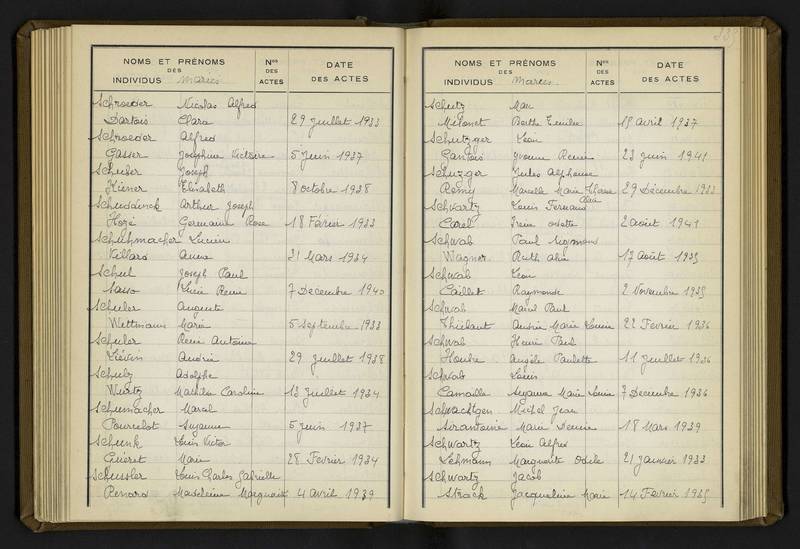 NOMS ET PRÉNOMS DES INDIVIDUS Mariés
Nos DES ACTES
DATE DES ACTES
Schroeder Nicolas Alfred
Dartois Clara 29 Juillet 1933
Schroeder Alfred
Gasser Joséphine Victoire 5 Juin 1937
Schuber Joseph
Kiener Elisabeth 8 octobre 1938
Schuddinck Arthur Joseph
Hozé Germaine Rose 18 Février 1933
Schuhmacher Lucien
Villard Anna 31 Mars 1934
Schul Joseph Paul
Sasso Lucie Renée 7 Decembre 1940
Schuler Auguste
Wettmann Marie 5 Septembre 1933
Schuler René Antoine
Liévin Andrée 29 Juillet 1938
Schulz Adolphe
Wurtz Mathilde Caroline 13 Juillet 1934
Schumacher Marcel
Pourcelot Suzanne 5 Juin 1937
Schunk Louis Victor
Guéret Marie 28 Fevrier 1934
Schussler Louis Charles Gabrielle
Renard Madeleine 4 avril 1939
NOMS ET PRÉNOMS DES INDIVIDUS Mariés
Nos DES ACTES
DATE DES ACTES
Schutz Marc
Berthe Emilie 18 avril 1937
Schutzger Léon
Gantois Yvonne Renée 23 Juin 1941
Schutzger Jules Alphonse
Remy Marcelle Marie Thérèse 29 Décembre 1933
Schwartz Louis Fernand
Carel Irène Odette 2 août 1941
Schwab Paul
Wagner Ruth 17 Août 1935
Schwab Léon
Caillet Raymonde 2 Novembre 1935
Schwab Marcel Paul
Thiébaut Andrée Marie Louise 22 Fevrier 1936
Schwab Henri Paul
Angèle Paulette 11 Juillet 1936
Schwab Louis
Camaille Suzanne Marie Louise 7 Décembre 1936
Schwachtgen Michel Jean
Sirantoine Marie Denise 18 Mars 1939
Schwartz Léon Alfred
Lehmann Marguerite Odile 21 Janvier 1933
Schwartz Jacob
Strack Jacqueline Marie 14 Fevrier 1935